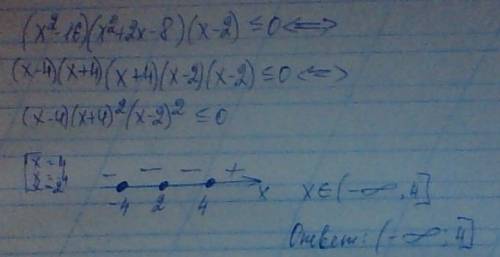 (x²-16)(x²+2x-8)(x-2)≤0<=>
(x-4)(x+4)(x+4)(x-2)(x-2)≤0<=>
(x-4)(x+4)²(x-2)²≤0
[x=4
x=-4
x=2
- - - +
-4 2 4 x
x∈(-∞,4]
Ответ: (-∞;4]